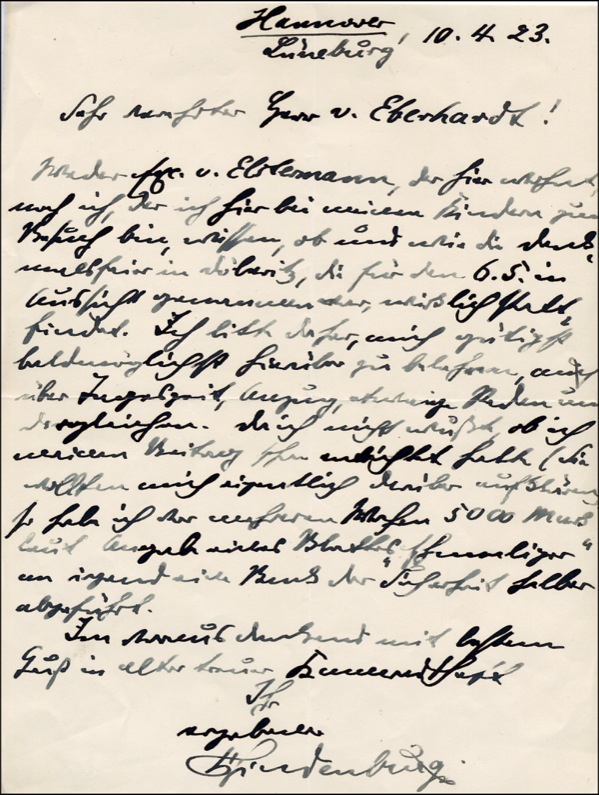 Hannover
Lüneburg, 10.4.23.
Sehr verehrter Herr v. Eberhardt!
Weder v. Elstermann, der hier wohnt,
noch ich, der ich hier bei meinen Kindern zum
Besuch bin, wissen, ob und wie die Denk-
malsfeier in Döberitz, die für den 6.5. in
Aussicht genommen war, wirklich statt-
findet. Ich bitte daher, mich gütigst
baldmöglichst hierüber zu belehren, auch
über Tageszeit, Anzug, etwaige Reden und
dergleichen. Da ich nicht wußte, ob ich
meinen Beitrag schon entrichtet hatte (Sie
wollten mich eigentlich darüber aufklären)
so habe ich vor mehreren Wochen 5000 Mark
laut Angabe eines Blattes "Ehemaliger"
an irgend eine Bank der "Sicherheit halber
abgeführt.
Im voraus dankend mit bestem
Gruß in alter treuer Kameradschaft
Ihr
ergebener
Hindenburg.